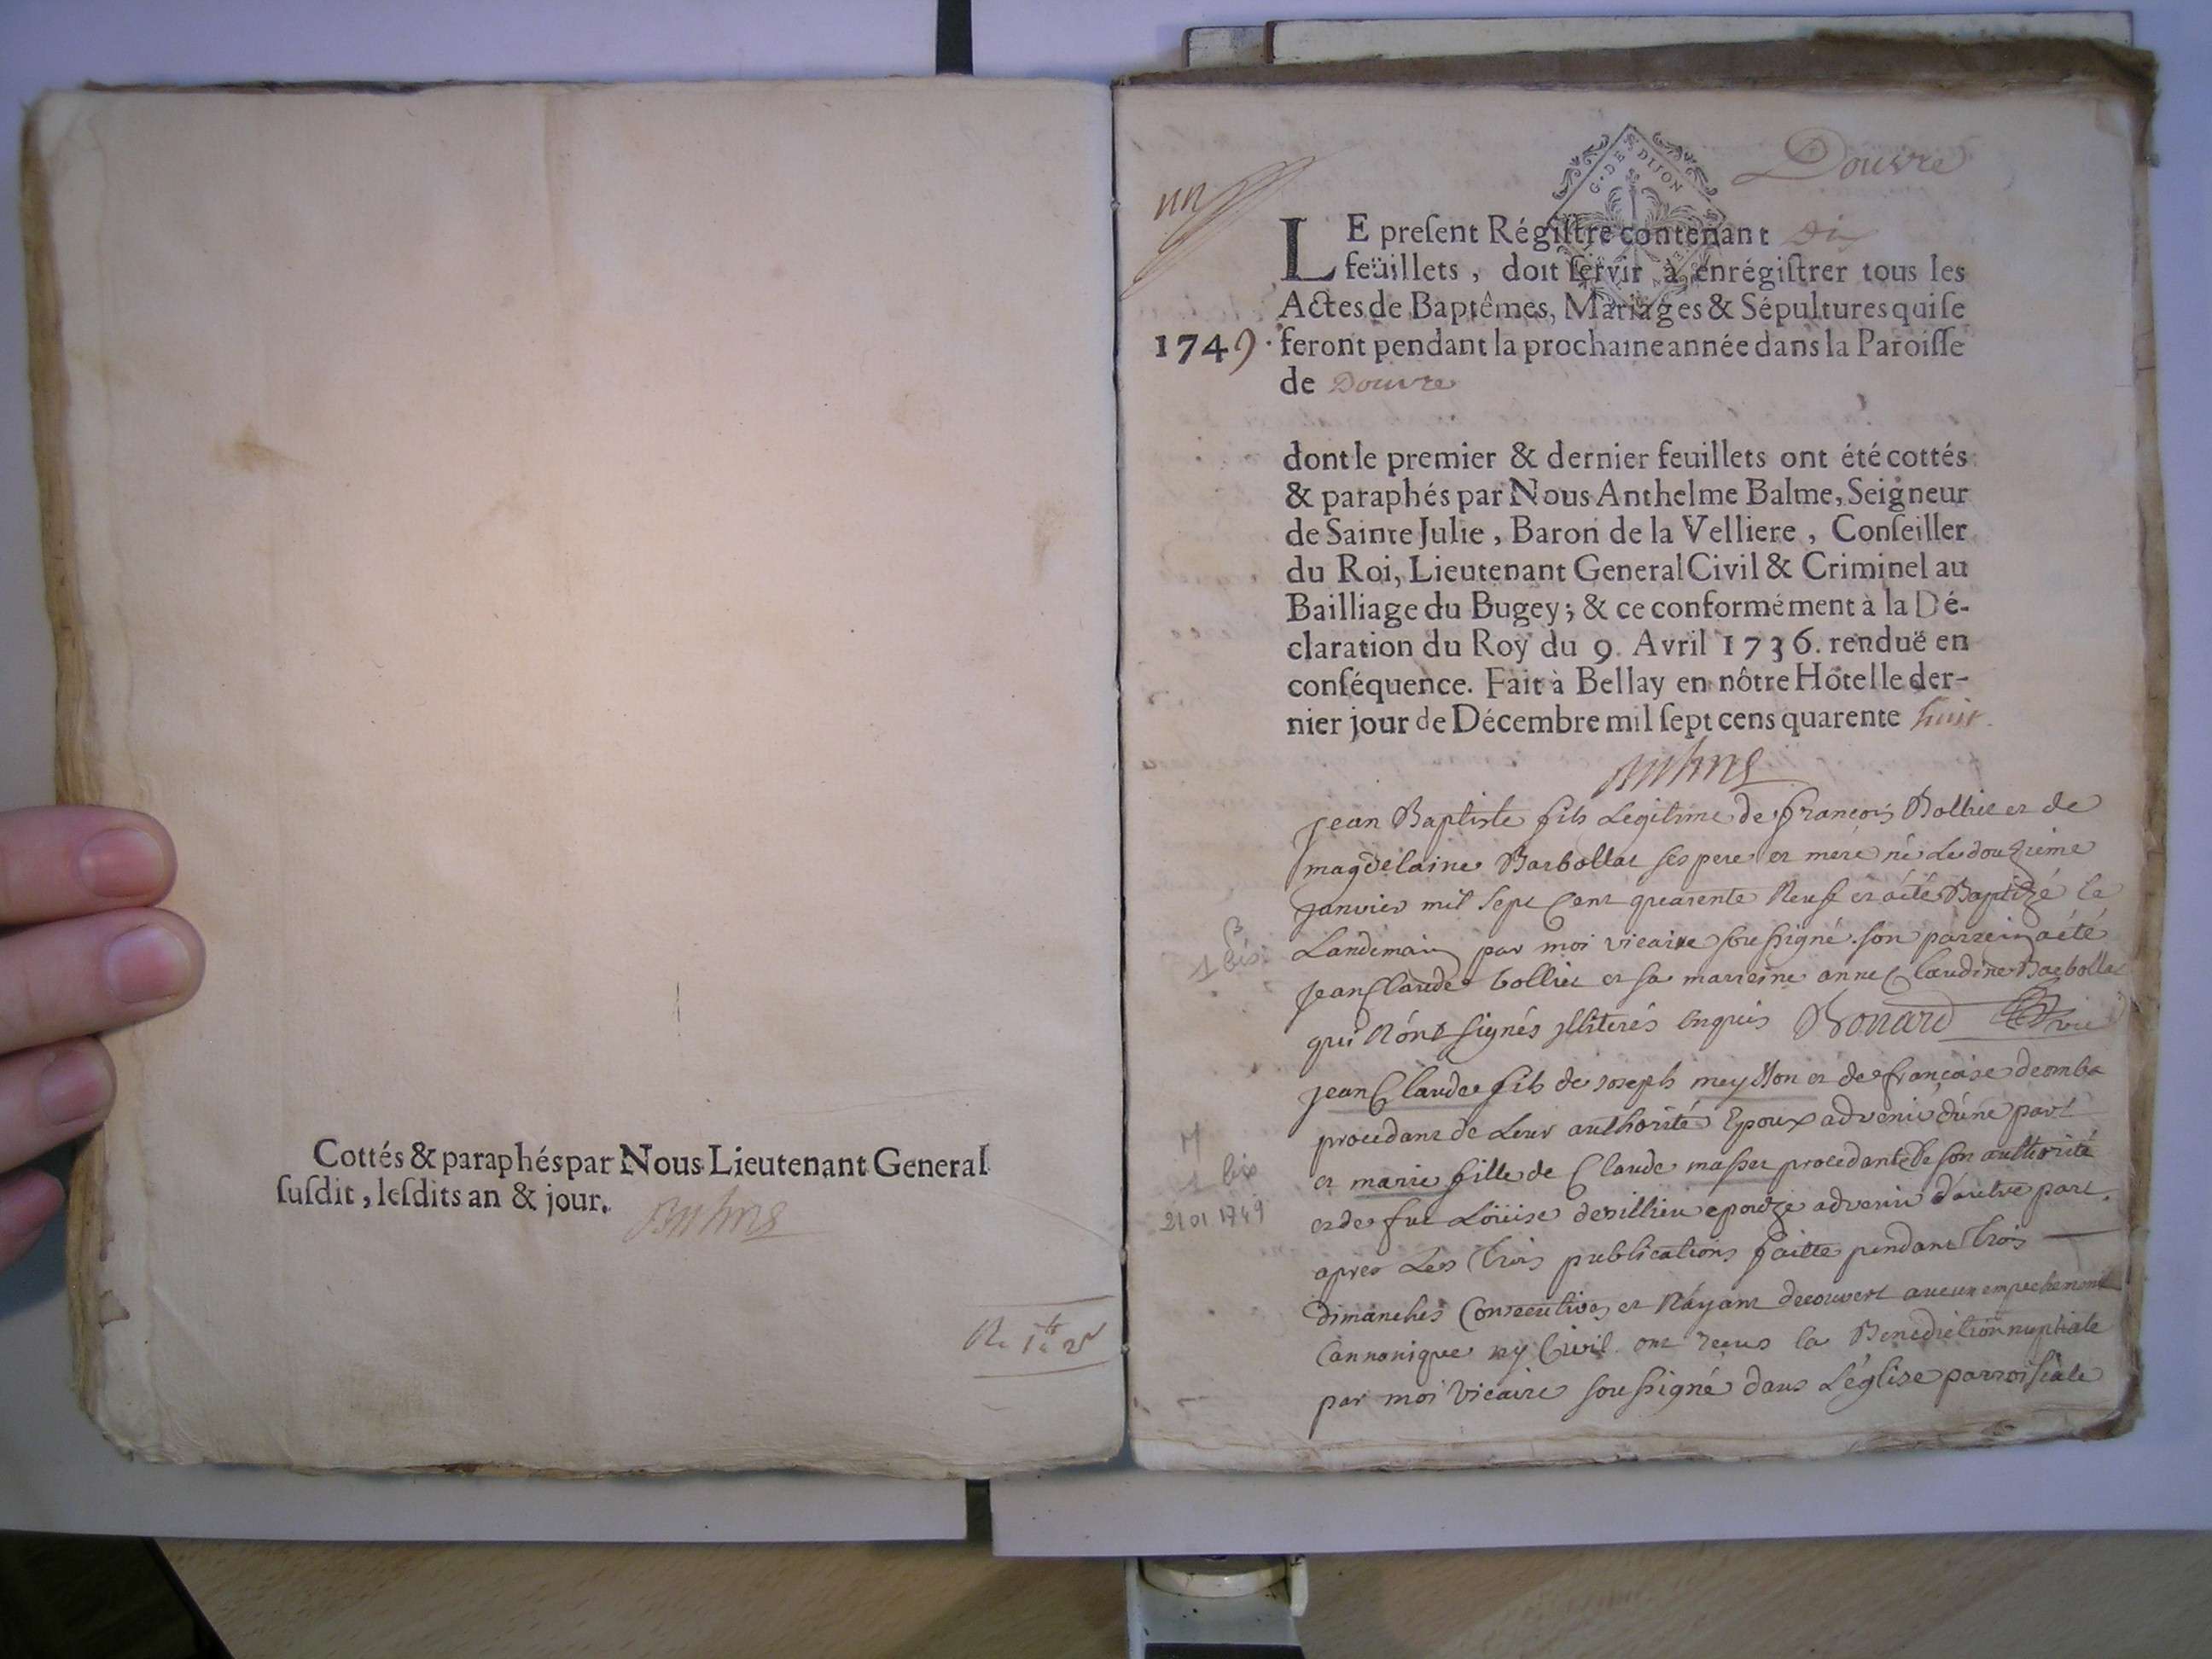 Cottés & paraphés par Nous Lieutenant General
susdit, lesdits an & jour.
un
G. DE DIJON
Douvre
LE present Régistre contenant Dix
feüillets, doit servir à enrégistrer tous les
Actes de Baptêmes, Mariages & Sépultures qui se
1749. feront pendant la prochaine année dans la Paroisse
de Douvre
dont le premier & dernier feuillets ont été cottés
& paraphés par Nous Anthelme Balme, Seigneur
de Sainte Julie, Baron de la Velliere, Conseiller
du Roi, Lieutenant General Civil & Criminel au
Bailliage du Bugey; & ce conformément à la Dé-
claration du Roy du 9. Avril 1736. renduë en
conséquence. Fait à Bellay en nôtre Hôtel le der-
nier jour de Décembre mil sept cens quarente huit.
jean Baptiste fils Legitime de françois Bollier et de
magdelaine Barbollat ses pere et mere né le douzieme
janvier mil sept Cent quarente Neuf et a été Baptizé le
Landemain par moi vicaire soussigné. son parrein a été
1 bis
jean Claude bollier et sa marreine anne Claudine Barbollat
qui n'ont signés illiterés enquis Bonard vic
jean Claude fils de joseph meysson et de françoise
procedant de Leur authorité Epoux advenir d'une part
M
1 bis
et marie fille de Claude masson procedante de son authorité
21 01 1749
et de fut Loüise devillieu epouze advenir d'autre part.
apres Les trois publications faitte pendant trois
dimanches Consecutives et N'ayant decouvert aucun empechement
Cannonique ny Civil ont reçus la Benediction nuptiale
par moi vicaire soussigné dans L'église parroissiale